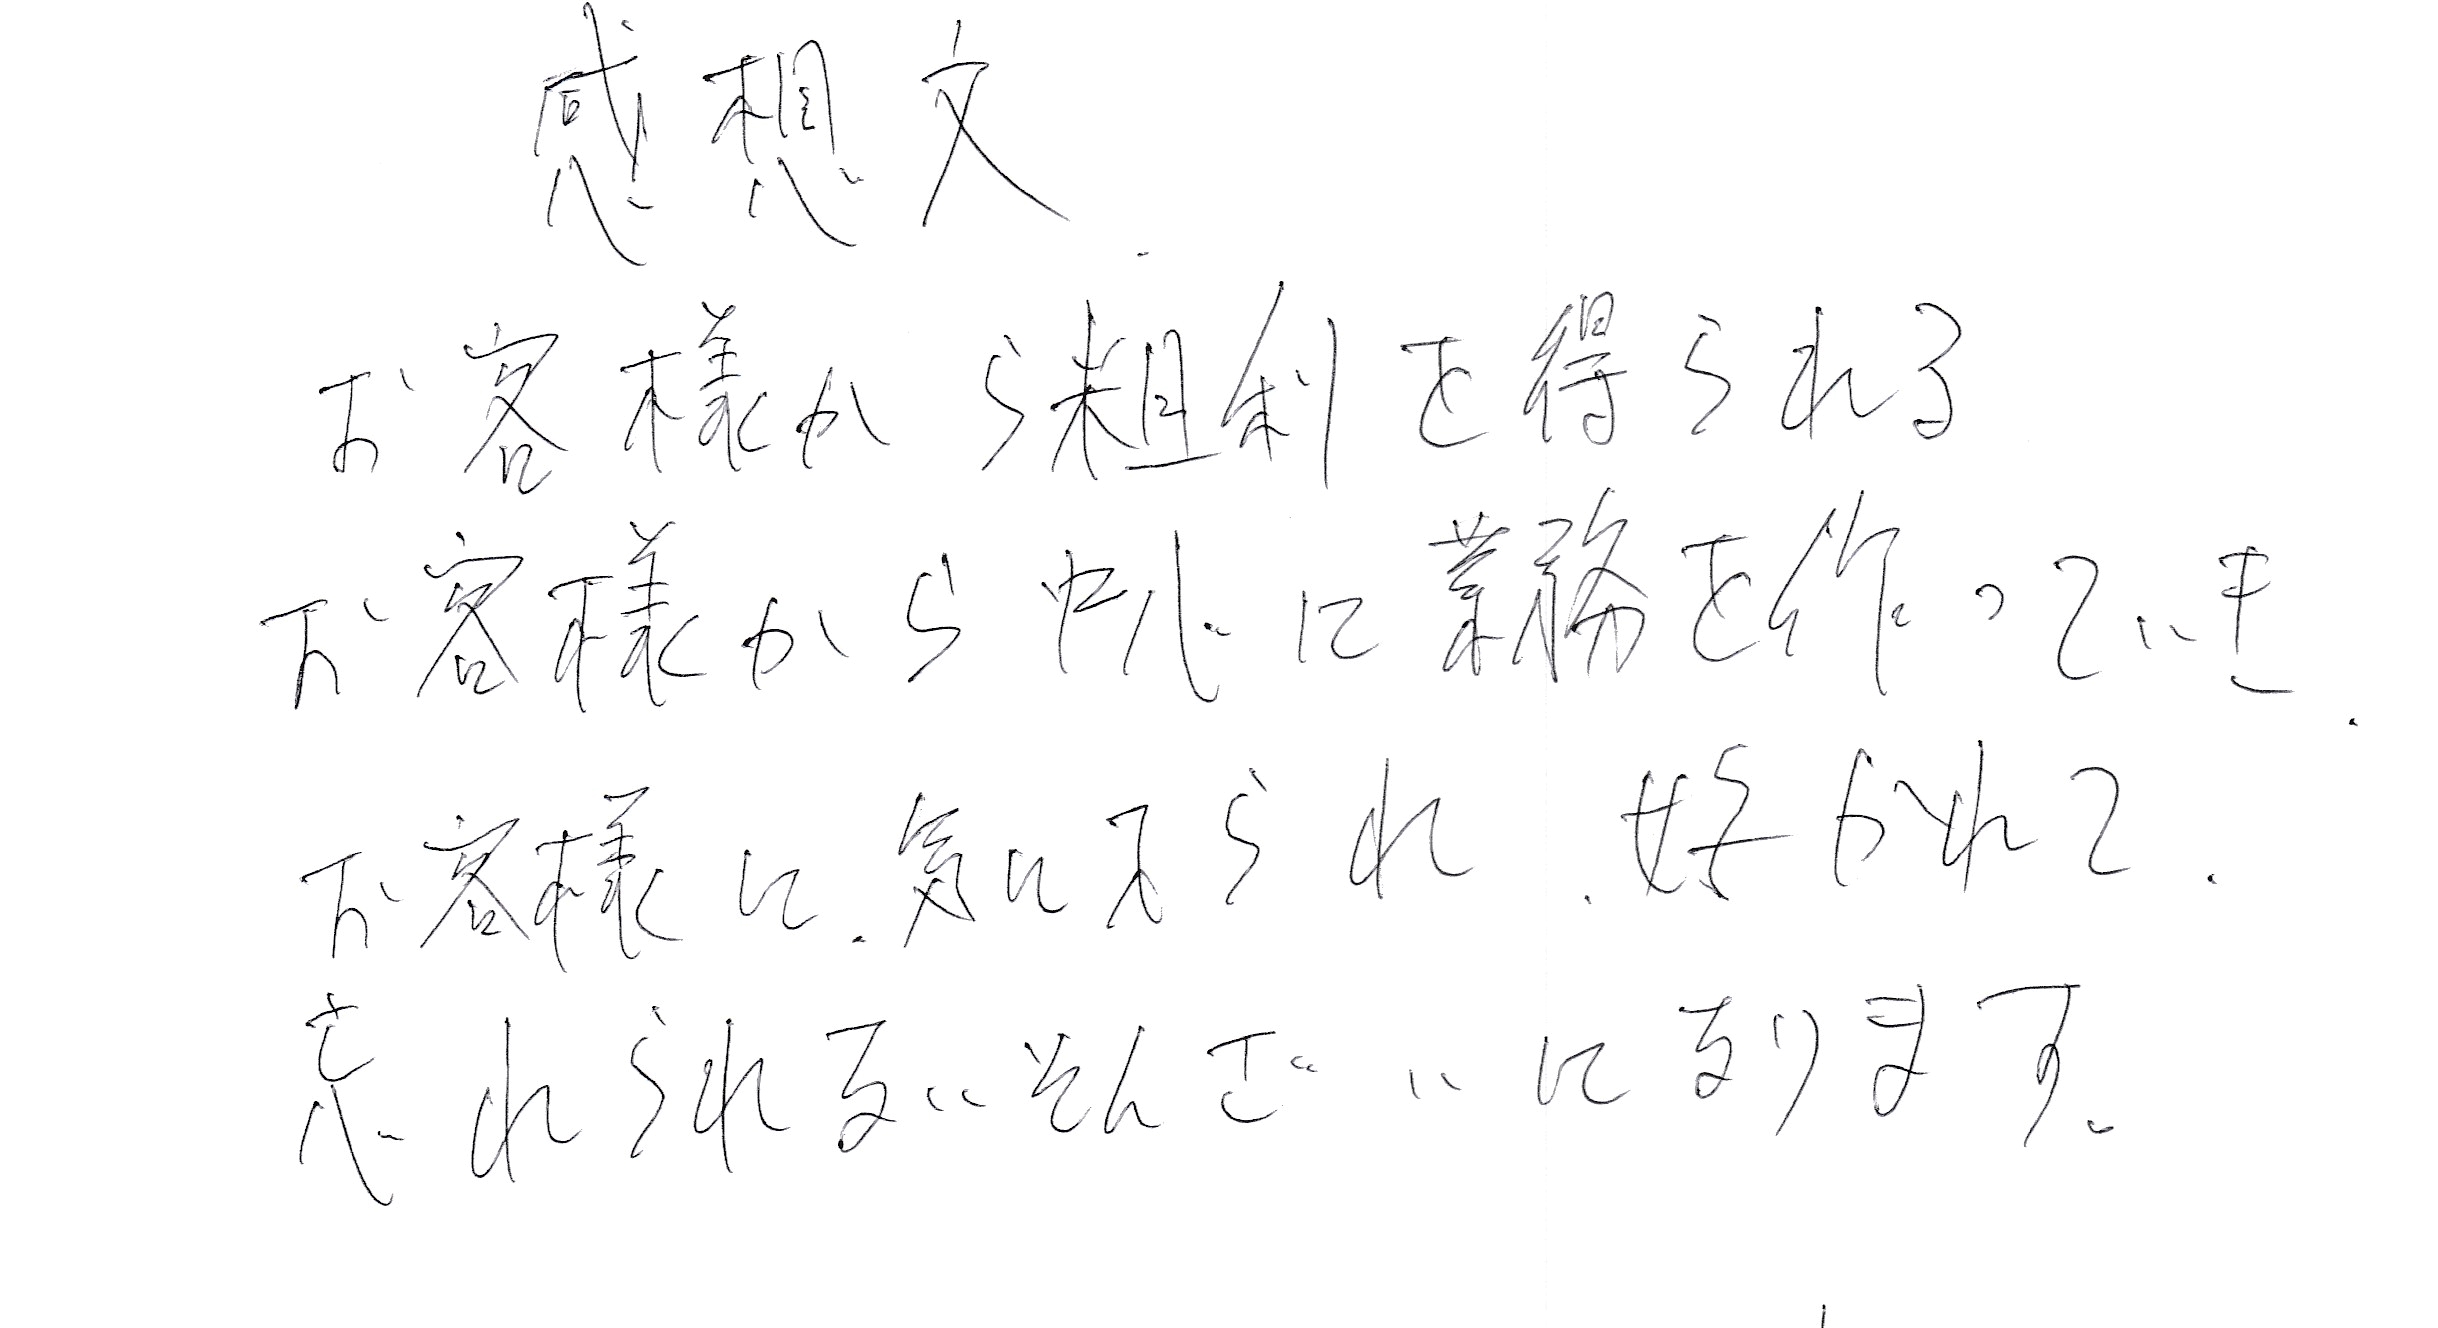 感想文
お客様から粗利を得られる
お客様から中心に業務を作っていき
お客様に、気に入られ、好かれて、
忘れられないそんざいになります。